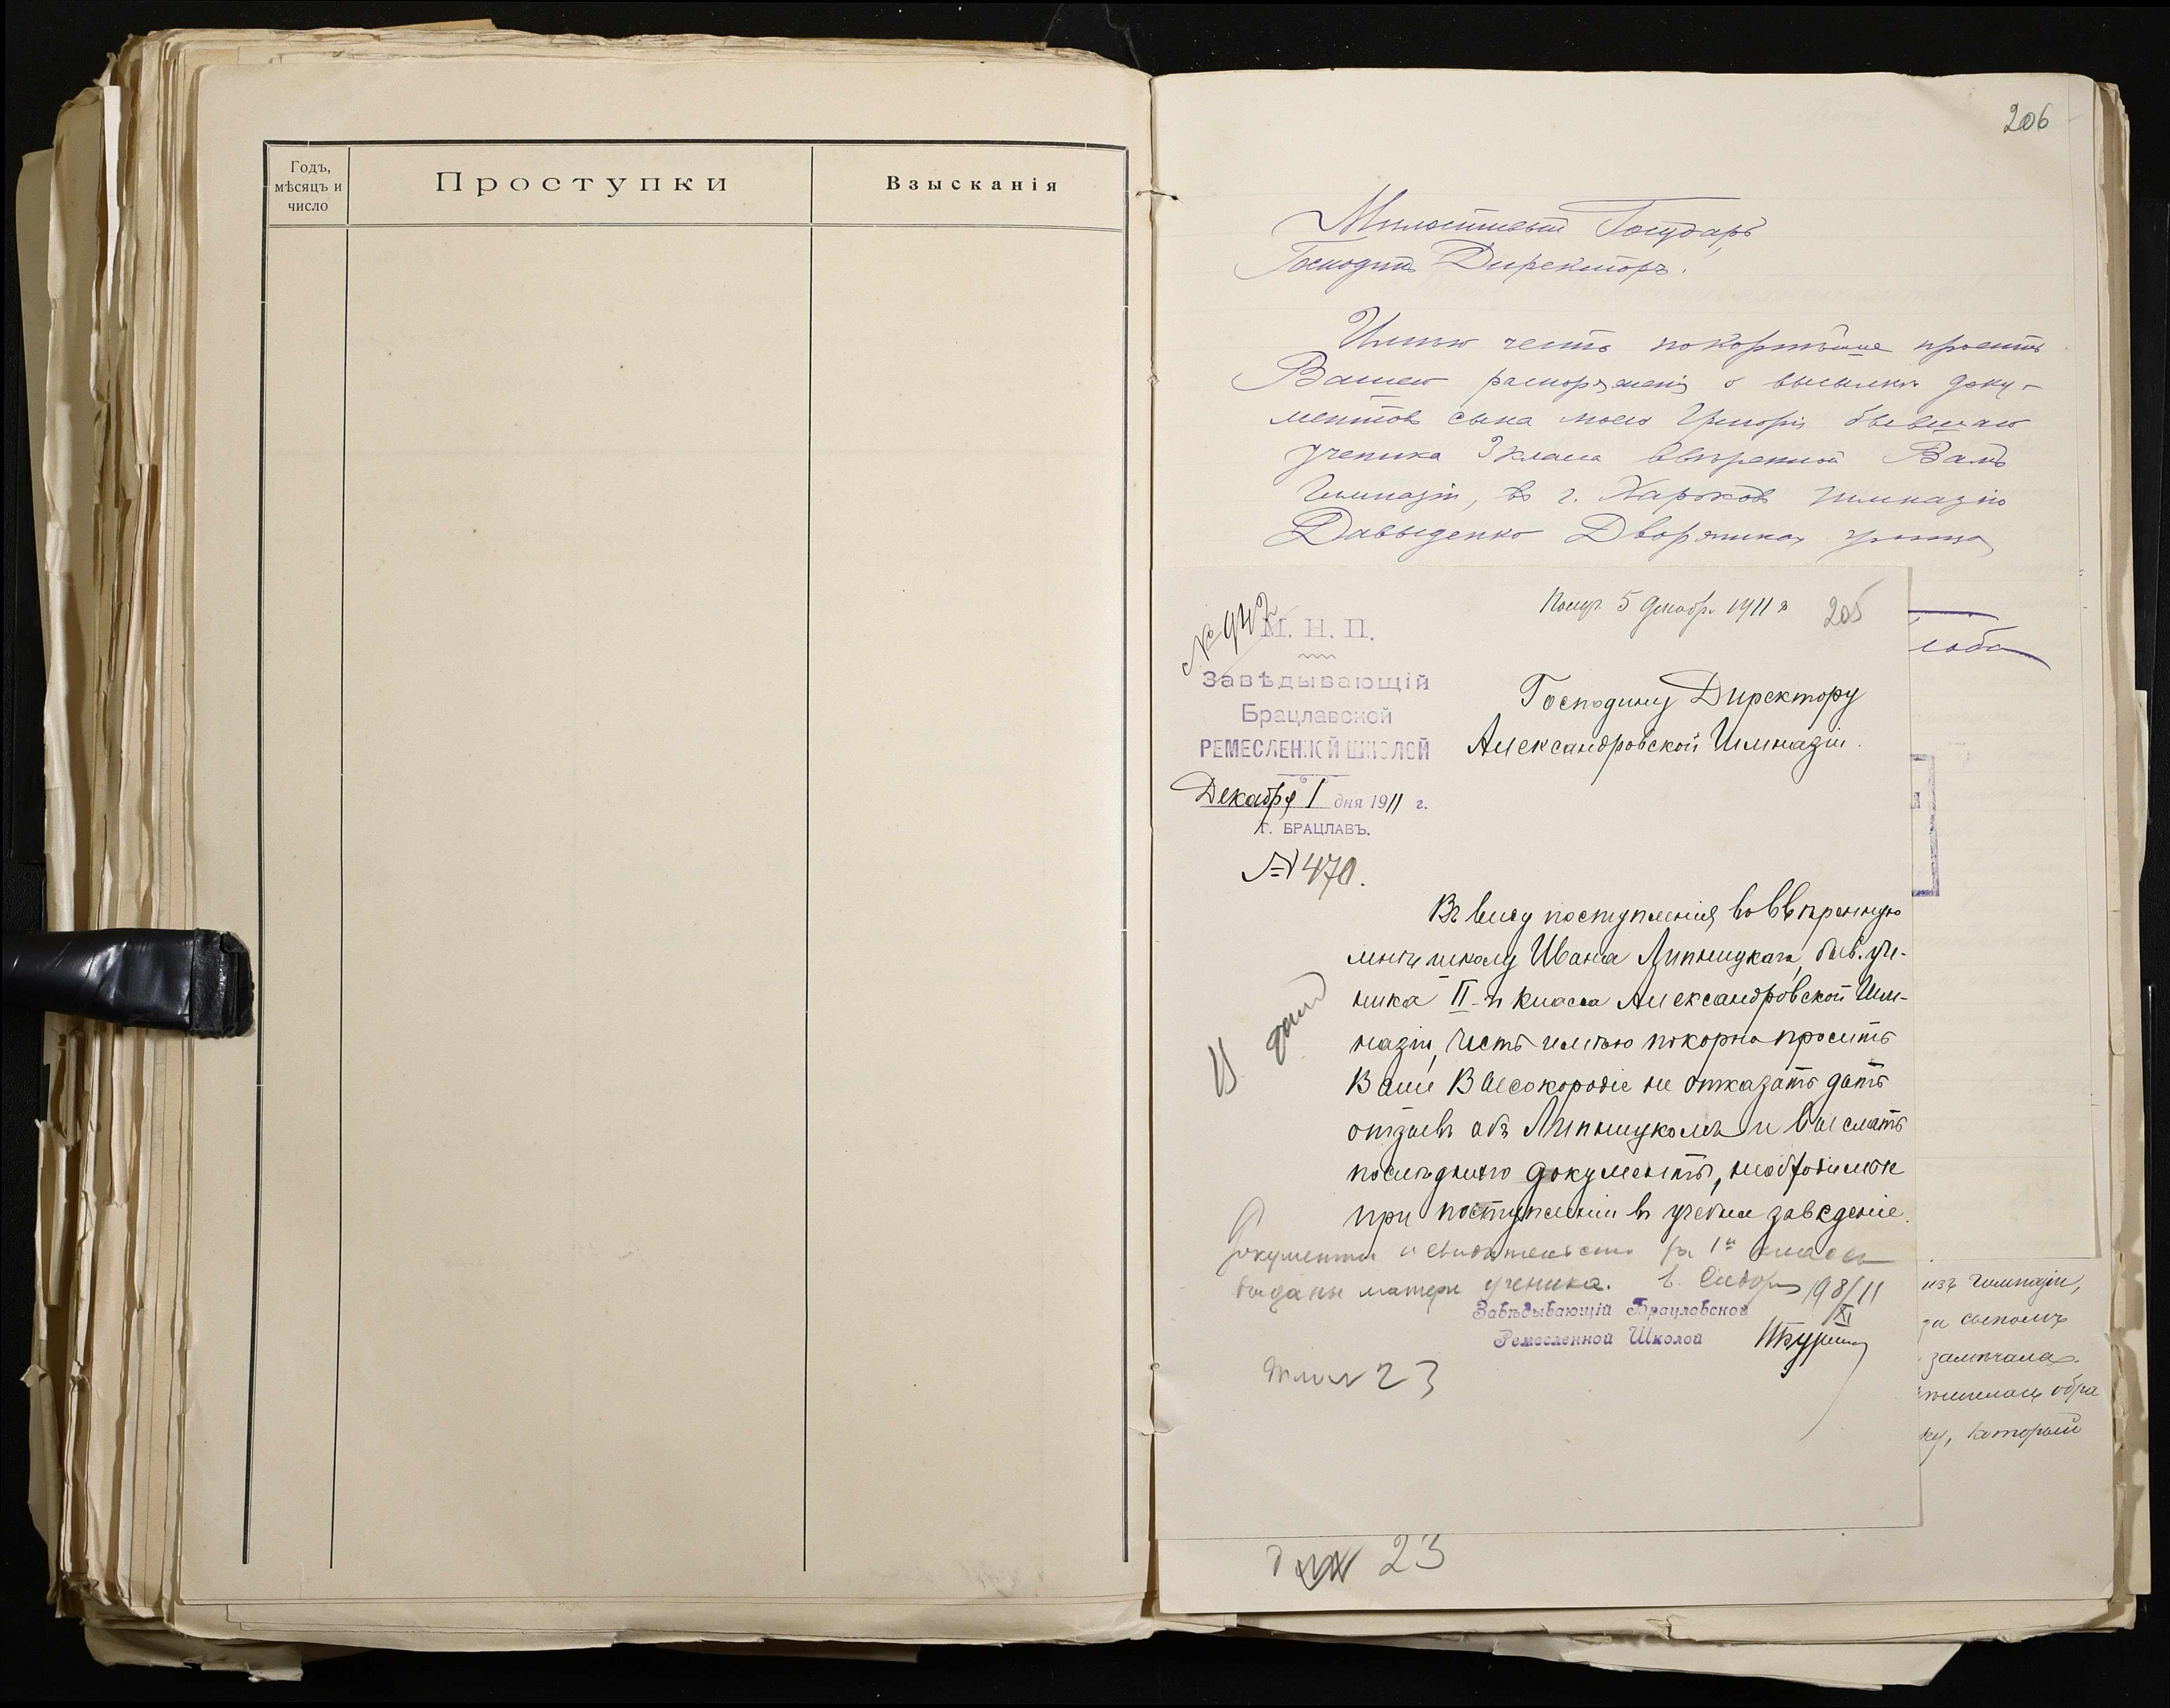 Годъ,
мѣсяцъ и
число
Проступки
Взысканія
206
Милостивый Государь
Господинъ Директоръ.
Имѣю честь покорнѣйше просить
Вашего распоряженія о высылкѣ доку-
ментовъ сына моего Григорія бывшаго
ученика 3 класса ввѣренной Вамъ
Гимназіи, въ г. Харьковъ гимназію
Давыденко Дворянская улица
Получ. 5 Декабр. 1911 г.
205
№ 942
М. Н. П.
Завѣдывающій
Брацлавской
РЕМЕСЛЕННОЙ ШКОЛОЙ
Декабря 1 дня 1911 г.
Г. БРАЦЛАВЪ.
№ 470.
Господину Директору
Александровской Гимназіи.
Въ виду поступленія во ввѣренную
мнѣ школу Ивана Липницкаго, быв. уче-
ника II-го класса Александровской Гим-
назіи, честь имѣю покорно просить
Ваше Высокородіе не отказать дать
отзывъ объ Липницкомъ и выслать
послѣдняго документы, необходимые
при поступленіи въ учебное заведеніе.
Документы и свидѣтельство за 1й классъ
выданы матери ученика.
Завѣдывающій Брацлавской
Ремесленной Школой
23
23
изъ гимназіи,
за сыномъ
замѣчала.
обра
который